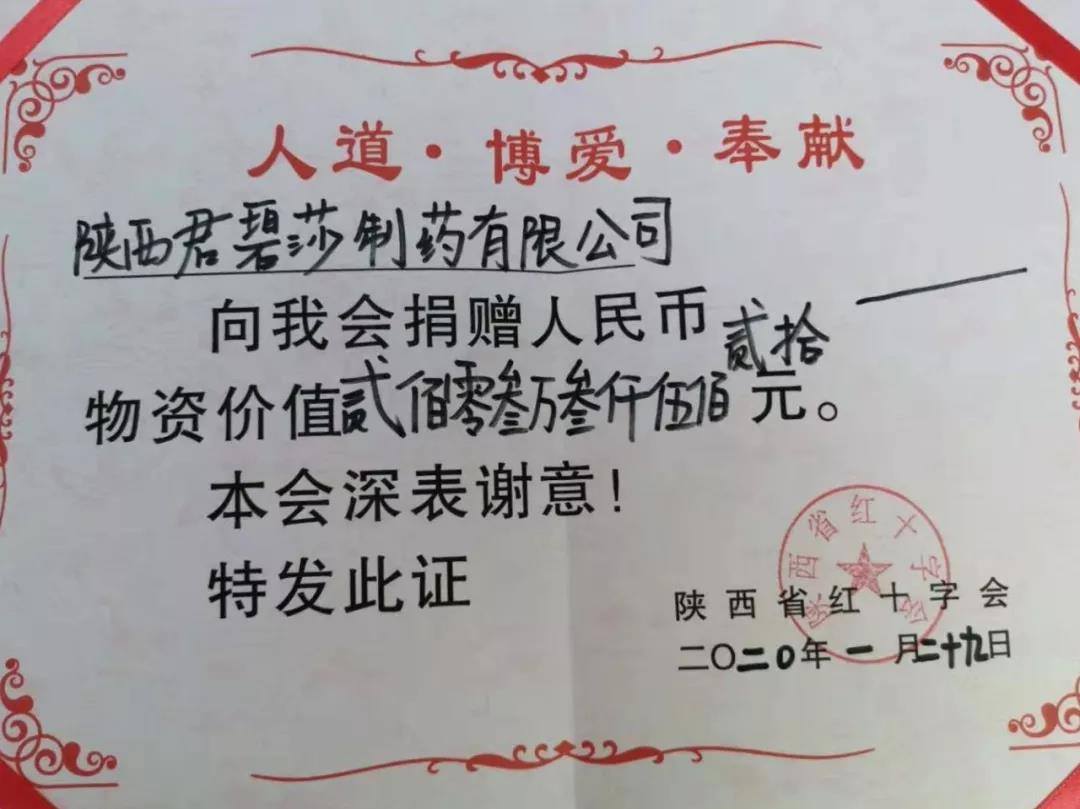 人道·博爱·奉献
陕西君碧莎制药有限公司
向我会捐赠人民币
物资价值贰佰零叁万叁仟伍佰贰拾元。
本会深表谢意!
特发此证
陕西省红十字会
陕西省红十字会
二〇二〇年一月二十九日